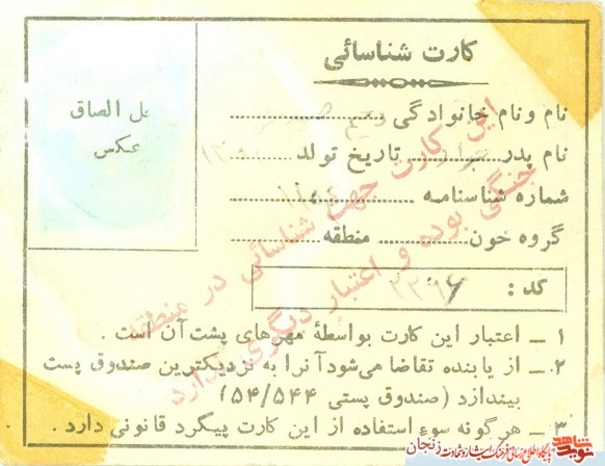 کارت شناسائی
محل الصاق
عکس
نام و نام خانوادگی
نام پدر تاریخ تولد
شماره شناسنامه
گروه خون منطقه
کد :
۱ ــ اعتبار این کارت بواسطهٔ مهرهای پشت آن است .
۲ ــ از یابنده تقاضا می‌شود آنرا به نزدیکترین صندوق پست
بیندازد (صندوق پستی ۵۴/۵۴۴)
۳ ــ هرگونه سوء استفاده از این کارت پیگرد قانونی دارد .
این کارت جهت شناسائی در منطقه
جنگی بوده و اعتبار دیگری ندارد
نوید شاهد
پایگاه اطلاع رسانی فرهنگ ایثار و شهادت زنجان